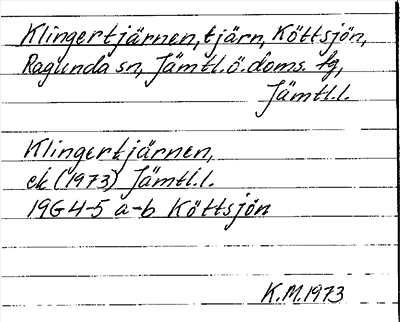 Klingertjärnen, tjärn, Köttsjön,
Ragunda sn, Jämtl.ö.doms. fg,
Jämtl.l.
Klingertjärnen,
ek (1973) Jämtl.l.
19G 4-5 a-b Köttsjön
K.M.1973